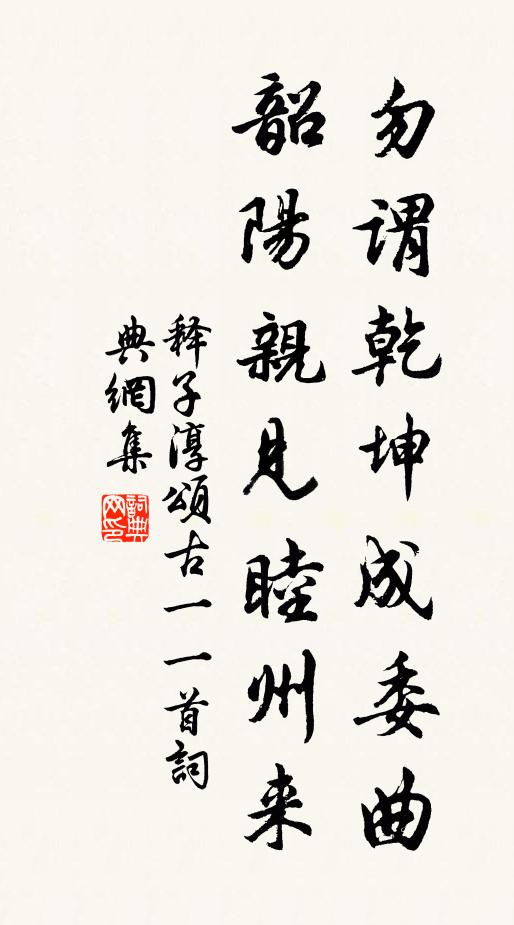 勿謂乾坤成委曲
韶陽親見睦州来
释子淳頌古一一首詞
典網集
詞典网印